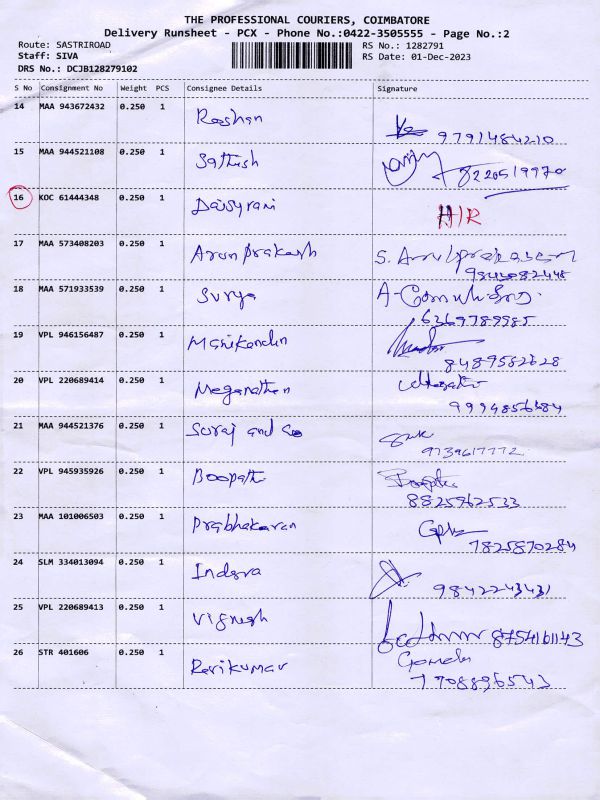 THE PROFESSIONAL COURIERS, COIMBATORE
Delivery Runsheet - PCX - Phone No.:0422-3505555 - Page No.:2
Route: SASTRIROAD RS No.: 1282791
Staff: SIVA RS Date: 01-Dec-2023
DRS No.: DCJB128279102
S No Consignment No Weight PCS Consignee Details Signature
14 MAA 943672432 0.250 1 Roshan
9791484210
15 MAA 944521108 0.250 1 Sathish
8220519970
16 KOC 61444348 0.250 1 Daisyrani H/R
17 MAA 573408203 0.250 1 Arun prakash S. Arulprakasam
18 MAA 571933539 0.250 1 Surya
6369789985
19 VPL 946156487 0.250 1 Manikandan
8489582628
20 VPL 220689414 0.250 1 Meganathan
9994856384
21 MAA 944521376 0.250 1 Suraj and co
9739617772
22 VPL 945935926 0.250 1 Boopathi
8825962533
23 MAA 101006503 0.250 1 Prabhakaran
7825870284
24 SLM 334013094 0.250 1 Indra
9842243431
25 VPL 220689413 0.250 1 Vignesh 8754161143
26 STR 401606 0.250 1 Ravikumar